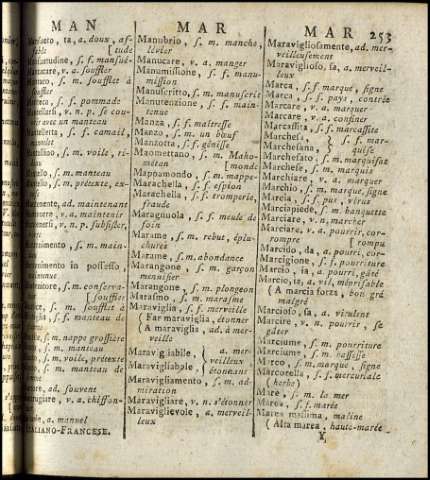 MAN
MAR
MAR
253
ta, a. doux, af-
fable
[tude
v. a. souffler
m. soufflet à
s. f. pommade
v. n. p. se cou-
vrir avec un manteau
s. f. camail,
s. m. voile, ri-
s. m. manteau
s. m. prétexte, ex-
ad. maintenant
v. a. maintenir
v. n. p. subsister,
s. m. main-
in possesso,
s. m. conserva-
[souffler
s. m. soufflet à
s. f. manteau de
s. m. nappe grossière
s. m. manteau
s. m. voile, prétexte
s. m. manteau de
ad. souvent
v. a. chiffon-
a. manuel
ITALIANO-FRANCESE.
Manubrio, s. m. manche,
lévier
Manucare, v. a. manger
Manumissione, s. f. manu-
mission
Manuscritto, s. m. manuscrit
Manutenzione, s. f. main-
tenue
Manza, s. f. maîtresse
Manzo, s. m. un bœuf
Manzotta, s. f. génisse
Maomettano, s. m. Maho-
métan
[monde
Mappamondo, s. m. mappe-
Marachella, s. f. espion
Marachella, s. f. tromperie,
fraude
Maragnuola, s. f. meule de
foin
Marame, s. m. rebut, éplu-
chures
Marame, s. m. abondance
Marangone, s. m. garçon
menuisier
Marangone, s. m. plongeon
Marasmo, s. m. marasme
Maraviglia, s. f. merveille
(Far maraviglia, étonner
(A maraviglia, ad. à mer-
veille
Maravigiabile, } a. mer-
veilleux
Maravigliabple, { étonnant
Maravigliamento, s. m. ad-
miration
Maravigliare, v. n. s'étonner
Maraviglievole, a. merveil-
leux
Maravigliosamente, ad. mer-
veilleusement
Maraviglioso, sa, a. merveil-
leux
Marca, s. f. marque, signe
Marca, s. f. pays, contrée
Marcare, v. a. marquer
Marcare, v. a. confiner
Marcassita, s. f. marcassite
Marchesa, } s. f. mar-
Marchesana, } quise
Marchesato, s. m. marquisat
Marchese, s. m. marquis
Marchiare, v. a. marquer
Marchio, s. m. marque, signe
Marcia, s. f. pus, virus
Marciapiede, s. m. banquette
Marciare, v. n. marcher
Marciare, v. a. pourrir, cor-
rompre
[rompu
Marcido, da, a. pourri, cor-
Marcigione, s. f. pourriture
Marcio, ia, a. pourri, gâté
Marcio, ia, a. vil, méprisable
(A marcia forza, bon gré
malgré
Marcioso, sa, a. virulent
Marcire, v. n. pourrir, se
gâter
Marciume, s. m. pourriture
Marciume, s. m. bassesse
Marco, s. m. marque, signe
Marcorella, s. f. mercuriale
(herbe)
Mare, s. m. la mer
Marea, s. f. marée
Marea massima, maline
(Alta marea, haute-marée